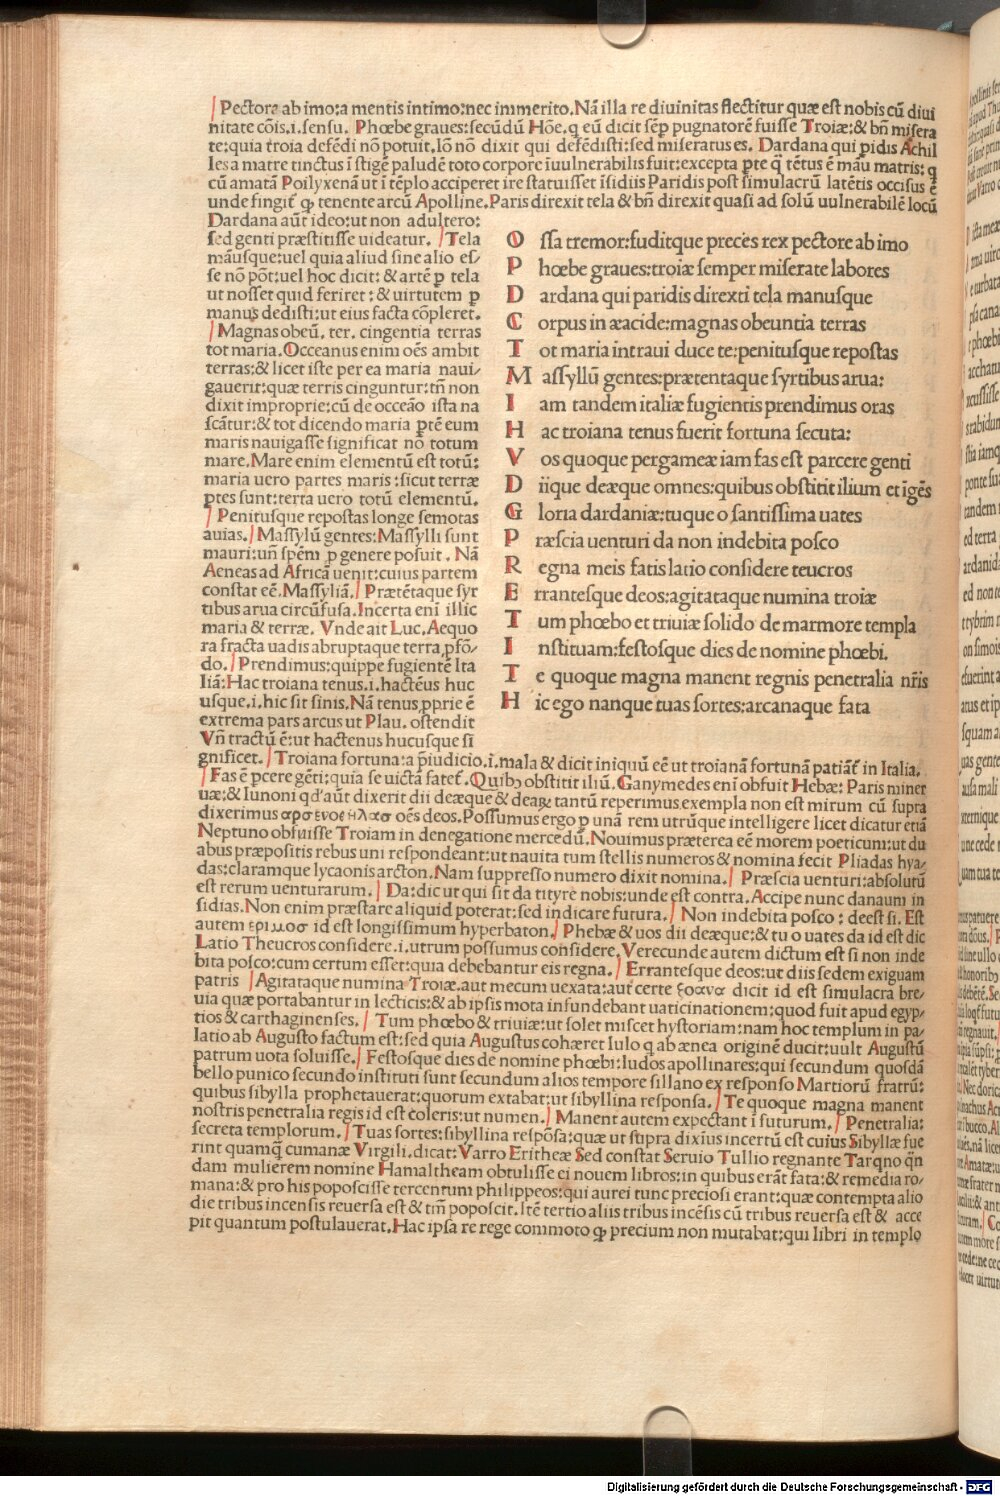 Pectore ab imo:a mentis intimo:nec immerito.Nā illa re diuinitas flectitur quæ est nobis cū diui
nitate cōis.i.sensu. Phœbe graues:secūdū Hōe.q eū dicit sēp pugnatorē fuisse Troiæ:& bñ misera
te:quia troia defēdi nō potuit.Iō nō dixit qui defēdisti:sed miseratus es. Dardana qui pidis Achil
les a matre tinctus ī stigē paludē toto corpore īuulnerabilis fuit:excepta pte q̄ tētus ē māu matris: q
cū amatā Poilyxenā ut ī tēplo acciperet ire statuisset īsidiis Paridis post simulacrū latētis occisus ē
unde fingit̄ qꝫ tenente arcū Apolline.Paris direxit tela & bñ direxit quasi ad solū uulnerabilē locū
Dardana aūt ideo:ut non adultero:
sed genti præstitisse uideatur. Tela
māusque:uel quia aliud sine alio es/
se nō pōt:uel hoc dicit: & artē p tela
ut nosset quid feriret: & uirtutem p
manus dedisti:ut eius facta cōpleret.
Magnas obeū. ter. cingentia terras
tot maria.Occeanus enim oēs ambit
terras:& licet iste per ea maria naui/
gauerit:quæ terris cinguntur:tñ non
dixit improprie:cū de occeāo ista na
scātur:& tot dicendo maria ptē eum
maris nauigasse significat nō totum
mare.Mare enim elementū est totū:
maria uero partes maris:sicut terræ
ptes sunt:terra uero totū elementū.
Penitusque repostas longe semotas
auias. Massylū gentes:Massylli sunt
mauri:uñ spēm p genere posuit. Nā
Aeneas ad Africā uenit:cuius partem
constat eē.Massyliā. Prætētaque syr
tibus arua circūfusa.Incerta enī illic
maria & terræ. Vnde ait Luc.Aequo
ra fracta uadis abruptaque terra pfō/
do. Prendimus:quippe fugientē Ita
liā:Hac troiana tenus.i.hactēus huc
usque.i.hic sit finis.Nā tenus pprie ē
extrema pars arcus ut Plau. ostendit
Vñ tractū ē:ut hactenus hucusque si
O ssa tremor:fuditque preces rex pectore ab imo
P hœbe graues:troiæ semper miserate labores
D ardana qui paridis direxti tela manusque
C orpus in æacide:magnas obeuntia terras
T ot maria intraui duce te:penitusque repostas
M assyllū gentes:prætentaque syrtibus arua:
I am tandem italiæ fugientis prendimus oras
H ac troiana tenus fuerit fortuna secuta:
V os quoque pergameæ iam fas est parcere genti
D iique deæque omnes:quibus obstitit ilium et īgēs
G loria dardaniæ:tuque o santissima uates
P ræscia uenturi da non indebita posco
R egna meis fatis latio considere teucros
E rrantesque deos:agitataque numina troiæ
T um phœbo et triuiæ solido de marmore templa
I nstituam:festosque dies de nomine phœbi.
T e quoque magna manent regnis penetralia nr̄is
H ic ego nanque tuas sortes:arcanaque fata
gnificet. Troiana fortuna:a p̄iudicio.ī.mala & dicit iniquū eē ut troianā fortunā patiāt̄ in Italia.
Fas ē pcere gēti:quia se uictā fatet̄.Quibꝫ obstitit iliū.Ganymedes enī obfuit Hebæ: Paris miner
uæ:& Iunoni qd'aūt dixerit dii deæque & deaꝝ tantū reperimus exempla non est mirum cū supra
dixerimus oēs deos.Possumus ergo p unā rem utrūque intelligere licet dicatur etiā
Neptuno obfuisse Troiam in denegatione mercedū.Nouimus præterea eē morem poeticum:ut du
abus præpositis rebus uni respondeant:ut nauita tum stellis numeros & nomina fecit Pliadas hya/
das:claramque lycaonis arcton.Nam suppresso numero dixit nomina. Præscia uenturi:absolutū
est rerum uenturarum. Da:dic ut qui sit da tityre nobis:unde est contra.Accipe nunc danaum in
sidias.Non enim præstare aliquid poterat:sed indicare futura. Non indebita posco: deest si. Est
autem id est longissimum hyperbaton. Phebæ & uos dii deæque:& tu o uates da id est dic
Latio Theucros considere.i.utrum possumus considere.Verecunde autem dictum est si non inde
bita posco:cum certum esset:quia debebantur eis regna. Errantesque deos:ut diis sedem exiguam
patris Agitataque numina Troiæ.aut mecum uexata:aut certe ξοανα dicit id est simulacra bre/
uia quæ portabantur in lecticis:& ab ipsis mota infundebant uaticinationem:quod fuit apud egyp/
tios & carthaginenses. Tum phœbo & triuiæ:ut solet miscet hystoriam:nam hoc templum in pa/
latio ab Augusto factum est:sed quia Augustus cohæret Iulo q ab ænea originē ducit:uult Augustū
patrum uota soluisse. Festosque dies de nomine phœbi:ludos apollinares:qui secundum quosdā
bello punico secundo instituti sunt secundum alios tempore sillano ex responso Martiorū fratrū:
quibus sibylla prophetauerat:quorum extabat:ut sibyllina responsa. Te quoque magna manent
nostris penetralia regis id est coleris:ut numen. Manent autem expectant ī futurum. Penetralia:
secreta templorum. Tuas sortes:sibyllina respōsa:quæ ut supra diximus incertū est cuius Sibyllæ fue
rint quamq̄ cumanæ Virgili.dicat:Varro Eritheæ Sed constat Seruio Tullio regnante Tarqno q̄n
dam mulierem nomine Hamaltheam obtulisse ei nouem libros:in quibus erāt fata:& remedia ro/
mana:& pro his poposcisse tercentum philippeos:qui aurei tunc preciosi erant:quæ contempta alio
die tribus incensis reuersa est & tm̄ poposcit.Itē tertio aliis tribus incēsis cū tribus reuersa est & acce
pit quantum postulauerat.Hac ipsa re rege commoto qꝫ precium non mutabat:qui libri in templo
Digitalisierung gefördert durch die Deutsche Forschungsgemeinschaft - DFG